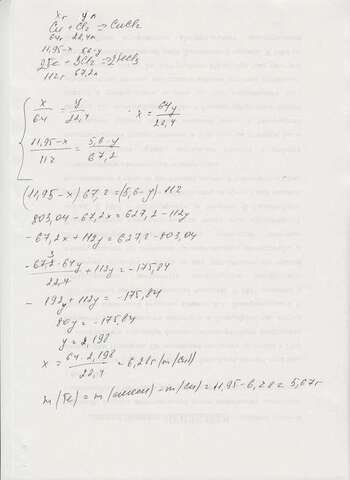 x г y л
Cu + Cl2 = CuCl2
64г 22,4л
11,95-x 5,6-y
2Fe + 3Cl2 = 2FeCl3
112г 67,2л
x/64 = y/22,4 x = 64y/22,4
11,95-x/112 = 5,6-y/67,2
(11,95-x)67,2=(5,6-y)·112
803,04-67,2x=627,2-112y
-67,2x+112y=627,2-803,04
-67,2·64y/22,4 + 112y = -175,84
- 192y+112y = -175,84
80y = -175,84
y = 2,198
x = 64·2,198/22,4 = 6,28г (m(Cu))
m(Fe) = m(смеси) - m(Cu) = 11,95-6,28 = 5,67г